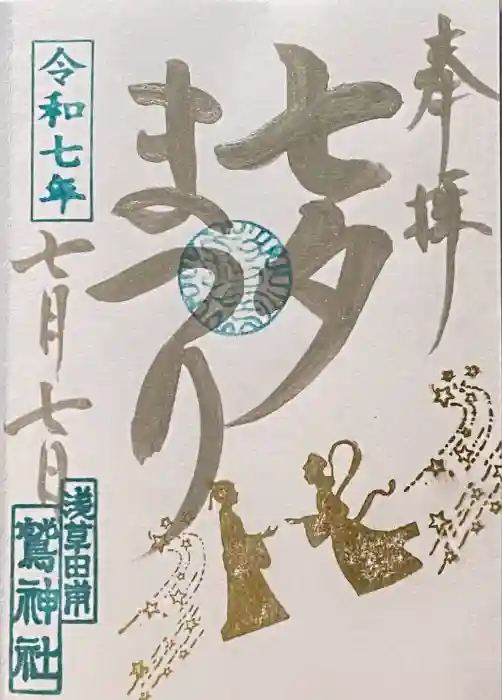 奉拝
七夕
まつり
令和七年
七月七日
浅草田甫
鷲神社